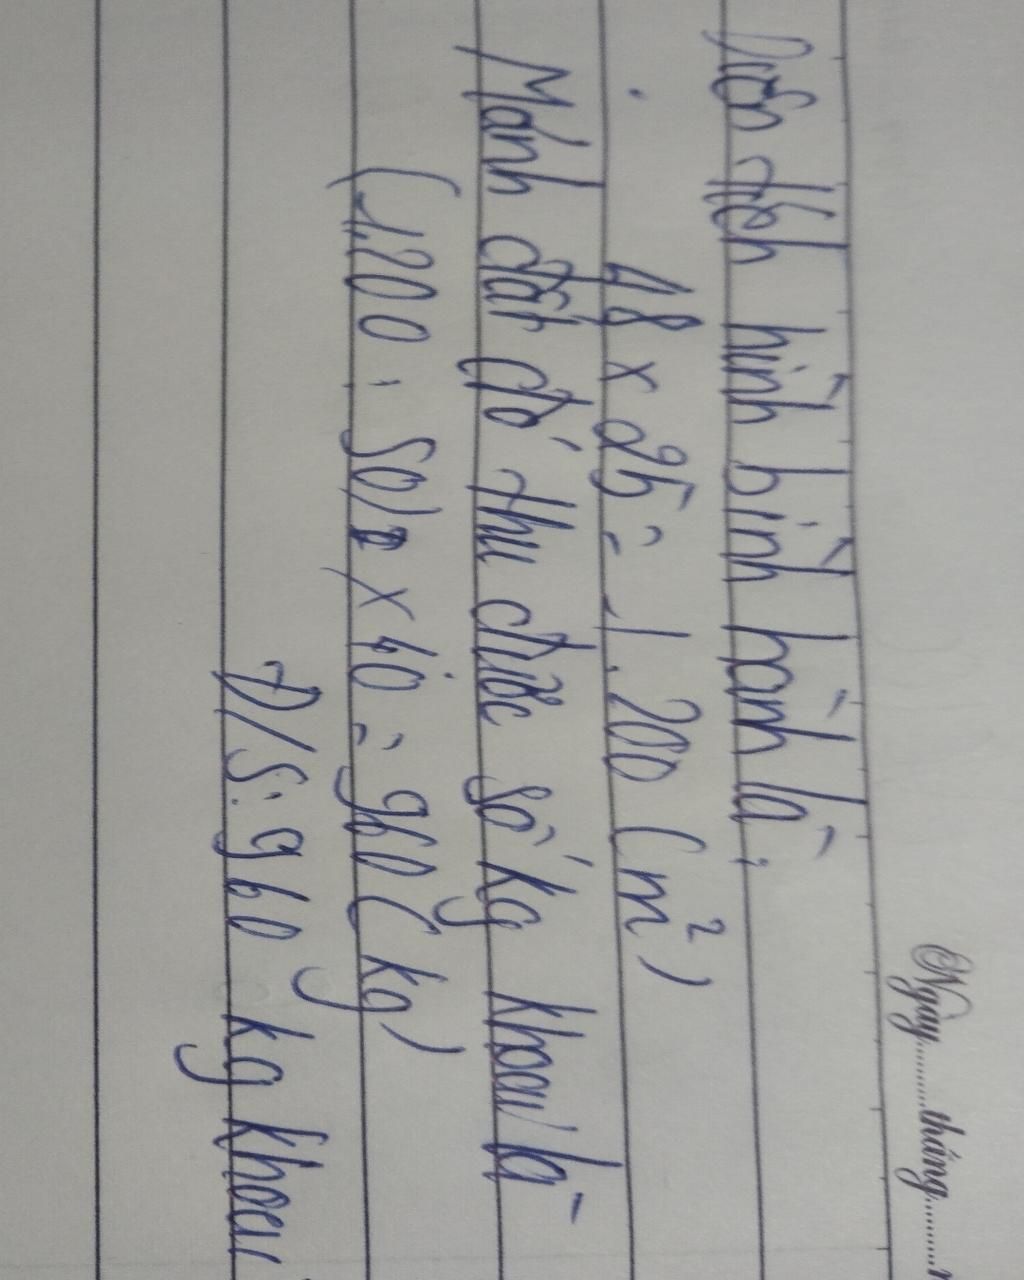 Ngày..........tháng..........
Diện tích hình bình hành là:
48 x 25 = 1.200 (m²)
Mảnh đất đó thu được số kg khoai là
(1200 : 50) x 40 = 960 (kg)
Đ/S: 960 kg khoai